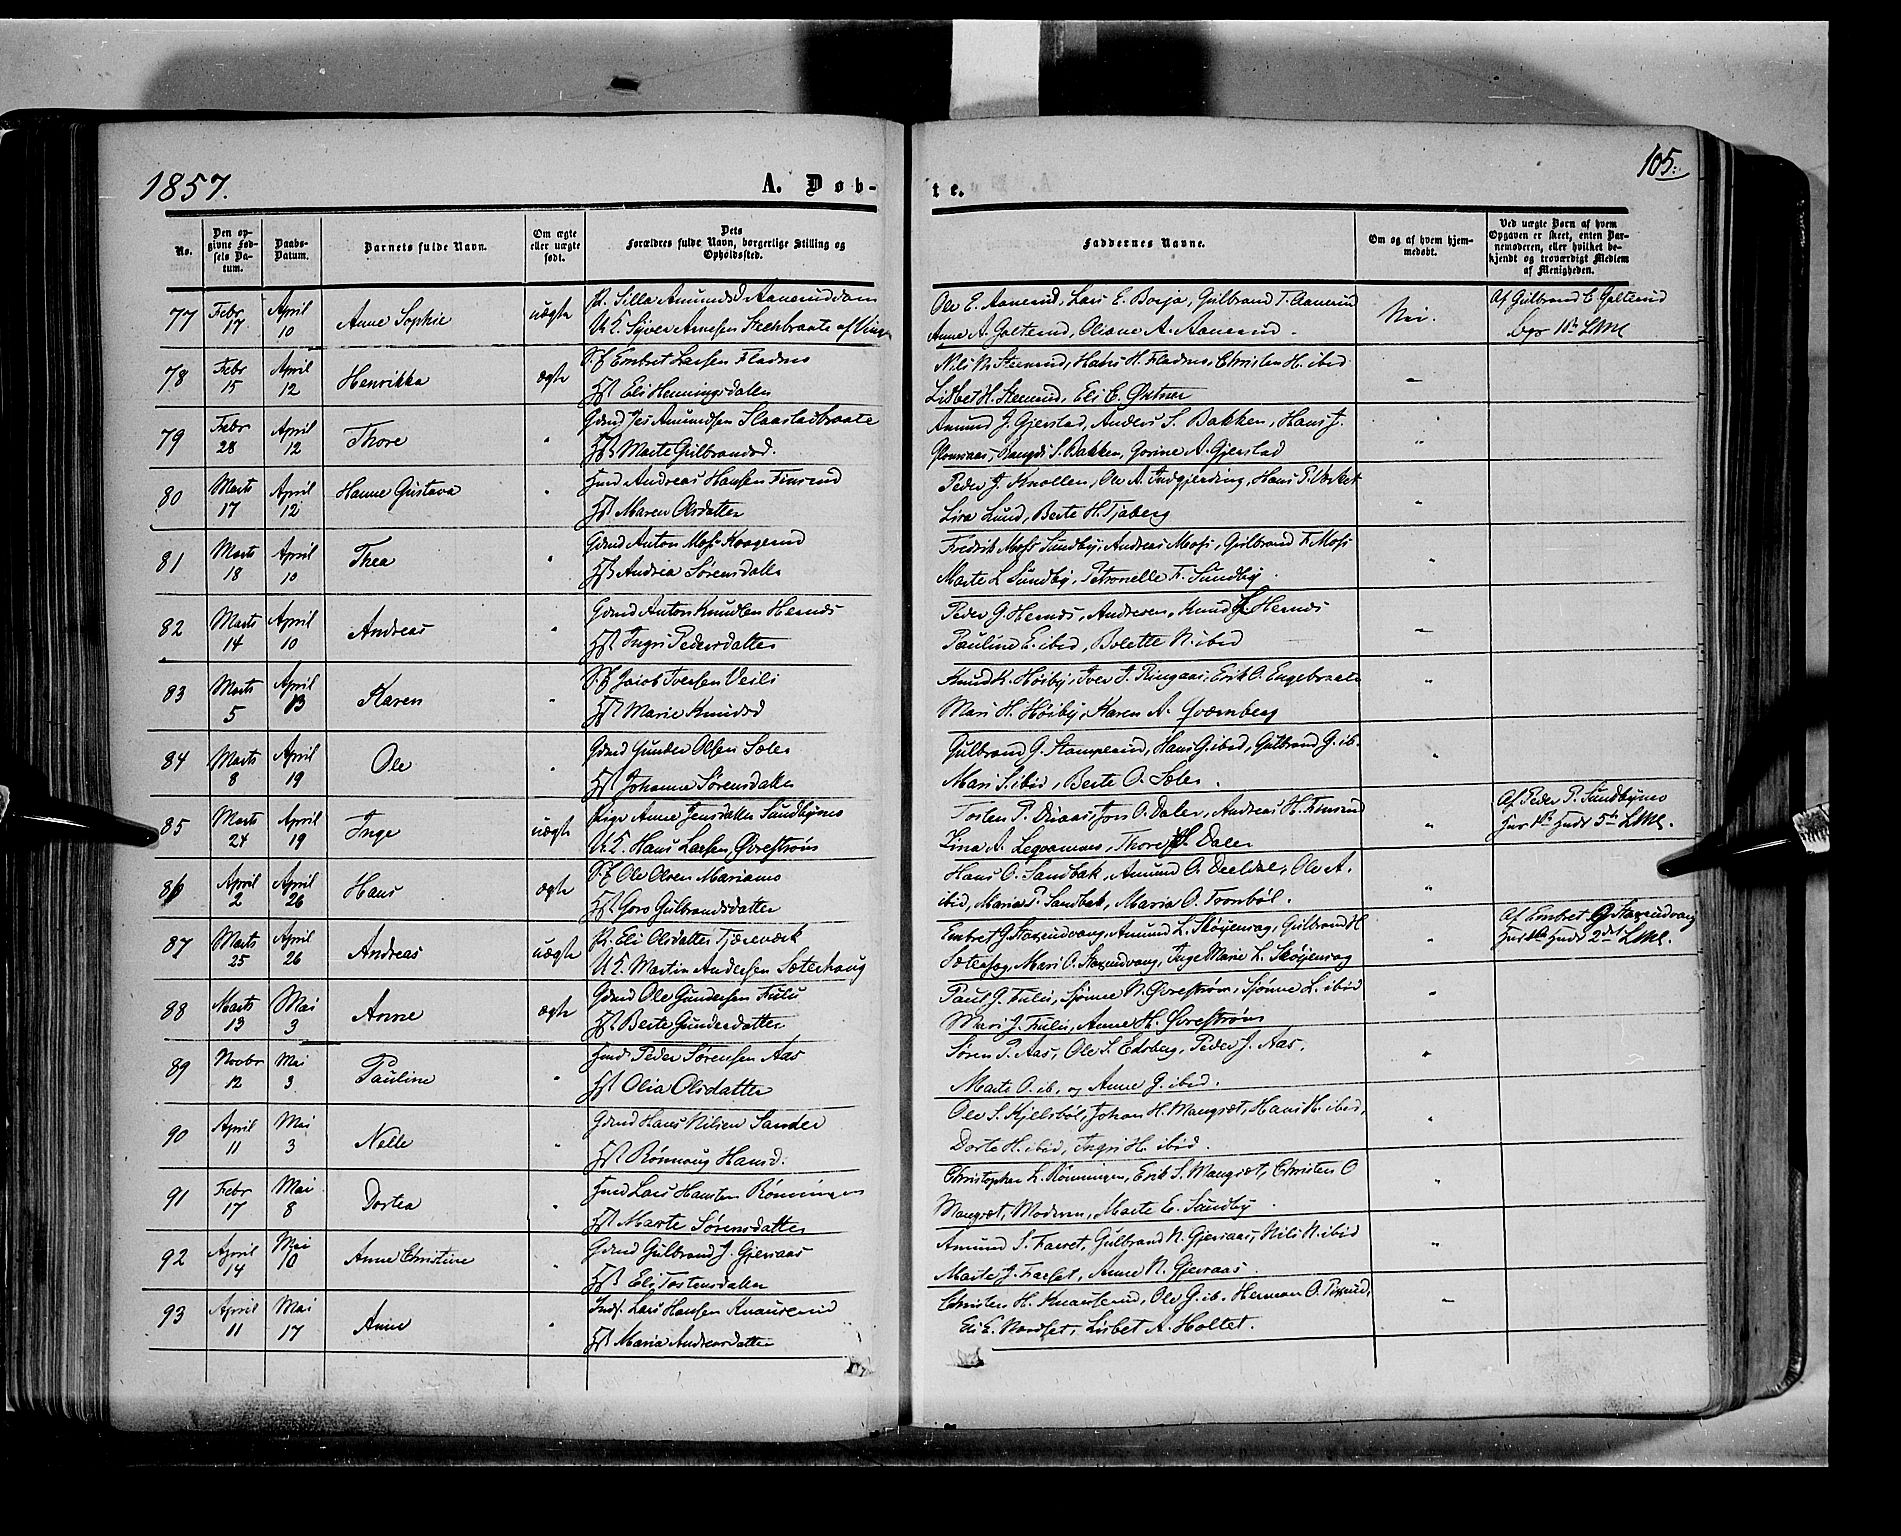 1857.
A. Døb-
te.
105.
No.
Den op-
givne Fød-
sels Da-
tum.
Daabs-
Datum.
Barnets fulde Navn.
Om ægte
eller uægte
født.
Dets
Forældres fulde Navn, borgerlige Stilling og
Opholdssted.
Faddernes Navne.
Om og af hvem hjem-
medøbt.
Ved uægte Børn af hvem
Opgaven er skeet, enten Bar-
nemoderen, eller hvilket be-
kjendt og troværdigt Medlem
af Menigheden.
77 Febr 17 April 10 Anne Sophie uægte
P. Silla Amundsd Aanerud
U. K. Syver Arnesen af Vinger
Ole E. Aanerud, Lars E. Borja, Gulbrand T. Aanerud
Anne A. Galterud, Oliane A. Aanerud.
Nei.
Af Gulbrand E Galterud
78 Febr 15 April 12 Henrikka ægte
Embret Larsen Fladnes
Hst Eli Henningsdatter
Nils N. Stemsrud, Hans H. Fladnes, Christen H. ibid
Lisbet H. Stemsrud, Eli E.
79 Febr 28 April 12 Thore "
Gdmd Jens Amundsen Slaastadbraate
Hst Marte Gulbrandsd.
Amund J. Gjerstad, Anders S. Bakken, Hans J.
S. Bakken, Gorine A. Gjerstad
80 Marts 17 April 12 Hanne Gustava "
Hmd Andreas Hansen Finsrud
Hst Maren Olsdatter
Peder J. Knollen, Ole A. Indgjerding, Hans P.
Lisa Lund, Berte H. Tjaberg
81 Marts 18 April 10 Thea "
Gdmd Anton Moss Kongerud
Hst Andrea Sørensdatter
Fredrik Moss Sundby, Andreas Moss, Gulbrand F. Moss
Marte L Sundby, Petronelle F. Sundby.
82 Marts 14 April 10 Andreas "
Gdmd Anton Knudsen Hernes
Hst Ingri Pedersdatter
Peder G. Hernes, Andreas, Knud Hernes
Pauline E. ibid, Bolette N. ibid
83 Marts 5 April 13 Karen "
Jacob Iversen Veili
Hst Marie Knudsd
Knud K. Høiby, Iver J. Ringaas, Erik O. Engebraaten
Mari H. Høiby, Karen A. Qværnberg
84 Marts 8 April 19 Ole "
Gdmd Gunder Olsen Soler
Hst Johanne Sørensdatter
Gulbrand G. Stamperud, Hans G. ibid, Gulbrand G. ib.
Mari S. ibid, Berte O. Soler.
85 Marts 24 April 19 Inge uægte
Pige Anne Jensdatter Sundbynes
U. K. Hans Larsen, Øvrestrøm
Torsten P. Jons O. Daler, Andreas H. Finsrud
Lina A. Thore Daler
Af Peder P. Sundbynes
86 April 2 April 26 Hans ægte
Ole Olsen Marianes
Hst Goro Gulbrandsdatter
Hans O. Sandbak, Amund O. Ole A.
ibid, Maria P. Sandbak, Maria O. Trønbøl.
87 Marts 25 April 26 Andreas uægte
P. Eli Olsdatter Tjæreverk
U. K. Martin Andersen Sæterhaug
Embret G. Staxrudvang, Amund L. Skøiensag, Gulbrand H
Sætersag, Mari O. Staxrudvang, Inge Marie L. Skøiensag
Af Embret G Staxrudvang
88 Marts 13 Mai 3 Anne ægte
Gdmd Ole Gundersen Fulu
Hst Berte Gundersdatter
Paul G. Fulu, Sjønne N. Øvrestrøm, Sjønne L. ibid
Mari J. Fulu, Anne H. Øvrestrøm
89 Novbr 12 Mai 3 Pauline "
Hmd Peder Sørensen Aas
Hst Olia Olsdatter
Søren P. Aas, Ole S. Edsberg, Peder J. Aas,
Marte O. ib. og Anne G. ibid.
90 April 11 Mai 3 Nelle "
Gdmd Hans Nilsen Sander
Hst Rønnaug Hansd.
Ole S. Kjelsbøl, Johan H. Mangset, Hans H. ibid,
Dorte H. ibid, Ingri H. ibid.
91 Febr 17 Mai 8 Dortea "
Hmd Lars Hansen Rønningen
Hst Marte Sørensdatter
Christopher L. Rønningen, Erik S. Mangset, Christen O
Mangset, Moderen, Marte E. Sundby.
92 April 14 Mai 10 Anne Christine "
Gdmd Gulbrand J. Gjersaas
Hst Eli Tostensdatter
Amund S. Farset, Gulbrand N. Gjersaas, Nils N. ibid
Marte J. Farset, Anne N. Gjersaas.
93 April 11 Mai 17 Anne "
Inds. Lars Hansen
Hst Maria Andreasdatter
Christen H. Knapserud, Ole G. ib. Herman O.
Eli E. Nordset, Lisbet A. Holtet.